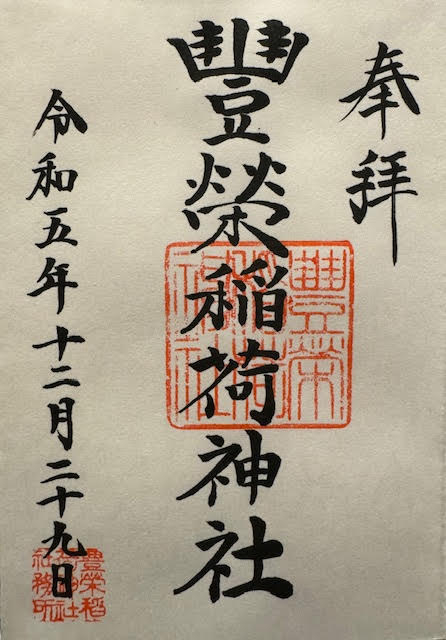 奉拜
豐榮稲荷神社
令和五年十二月二十九日
豊榮稲荷神社
豊榮稲荷神社社務所